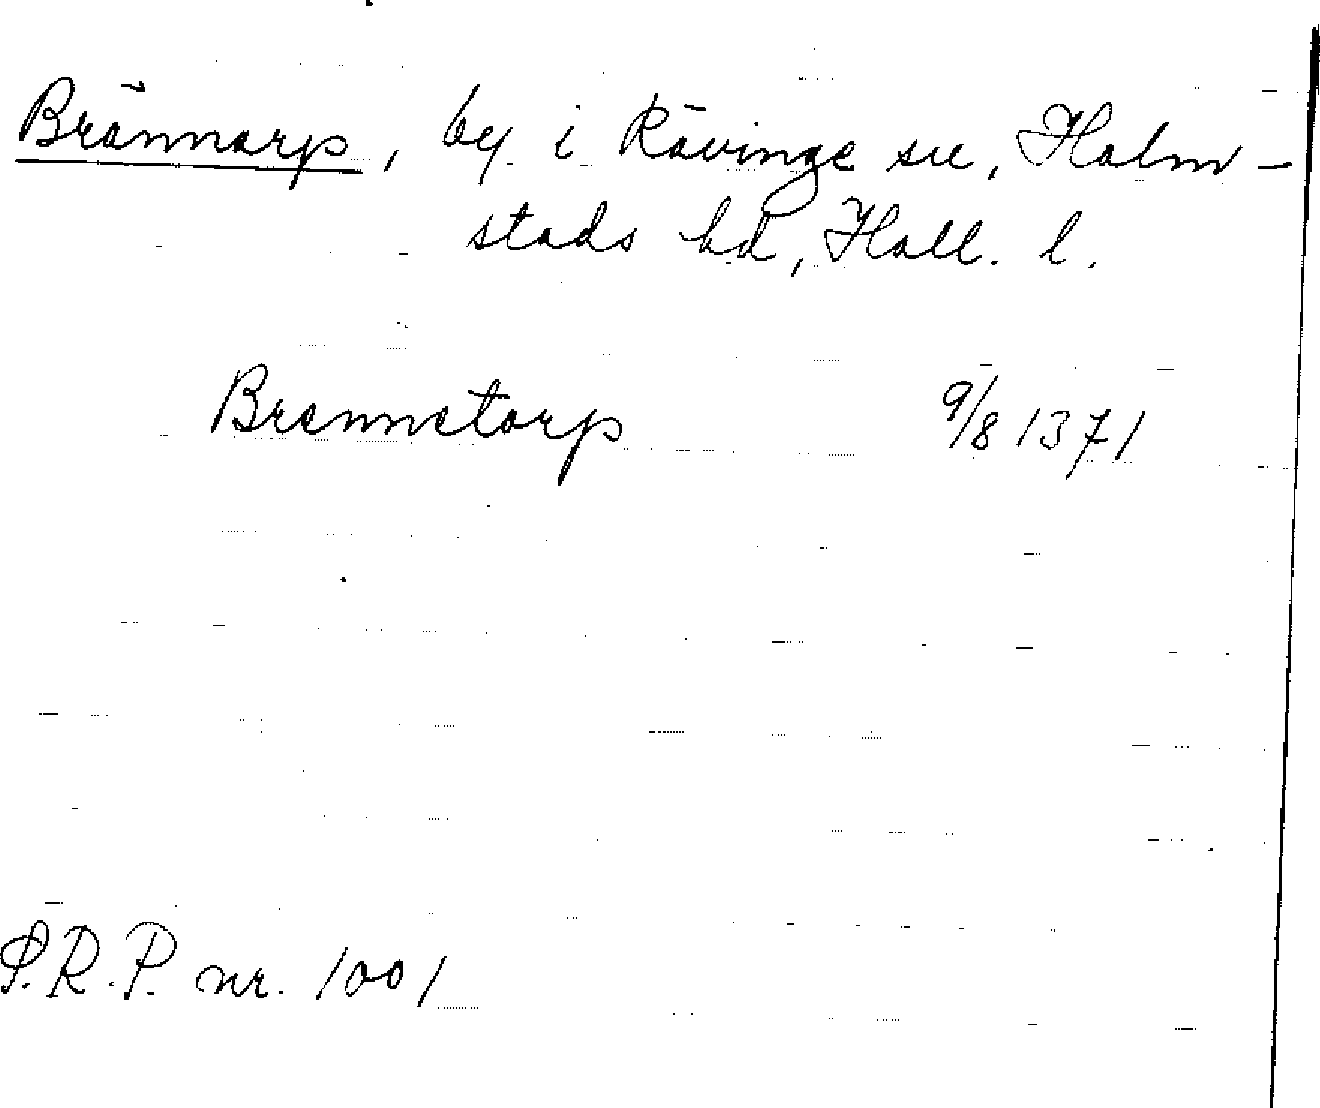 Brännarp, by i Rävinge sn, Halm-
stads hd, Hall. l.
Brennetorp 9/8 1371
S.R.P. nr. 1001